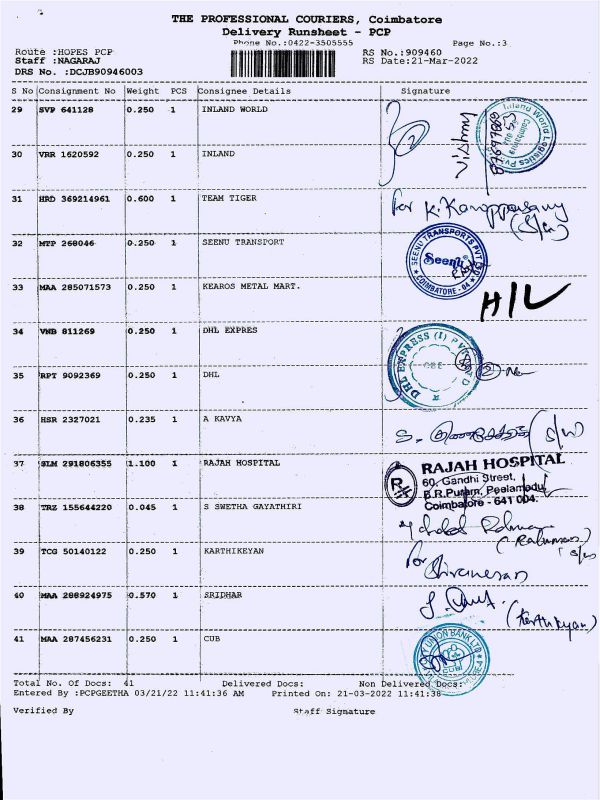 THE PROFESSIONAL COURIERS, Coimbatore
Delivery Runsheet - PCP
Phone No.:0422-3505555 Page No.:3
Route :HOPES PCP RS No.:909460
Staff :NAGARAJ RS Date:21-Mar-2022
DRS No. :DCJB90946003
S No Consignment No Weight PCS Consignee Details Signature
29 SVP 641128 0.250 1 INLAND WORLD
Inland World Logistics Pvt
Coimbatore
30 VRR 1620592 0.250 1 INLAND
31 HRD 369214961 0.600 1 TEAM TIGER
for K.
32 MTP 268046 0.250 1 SEENU TRANSPORT
SEENU TRANSPORTS PVT
Seenu
COIMBATORE - 04
33 MAA 285071573 0.250 1 KEAROS METAL MART.
H/L
34 VNB 811269 0.250 1 DHL EXPRES
DHL EXPRESS (I) PVT LTD
CBE
35 RPT 9092369 0.250 1 DHL
36 HSR 2327021 0.235 1 A KAVYA
37 SLM 291806355 1.100 1 RAJAH HOSPITAL
RAJAH HOSPITAL
60, Gandhi Street,
B.R.Puram, Peelamedu,
Coimbatore - 641 004.
38 TRZ 155644220 0.045 1 S SWETHA GAYATHIRI
39 TCG 50140122 0.250 1 KARTHIKEYAN
for
40 MAA 288924975 0.570 1 SRIDHAR
(Karthikeyan)
41 MAA 287456231 0.250 1 CUB
UNION BANK LTD
Total No. Of Docs: 41 Delivered Docs: Non Delivered Docs:
Entered By :PCPGEETHA 03/21/22 11:41:36 AM Printed On: 21-03-2022 11:41:38
Verified By Staff Signature